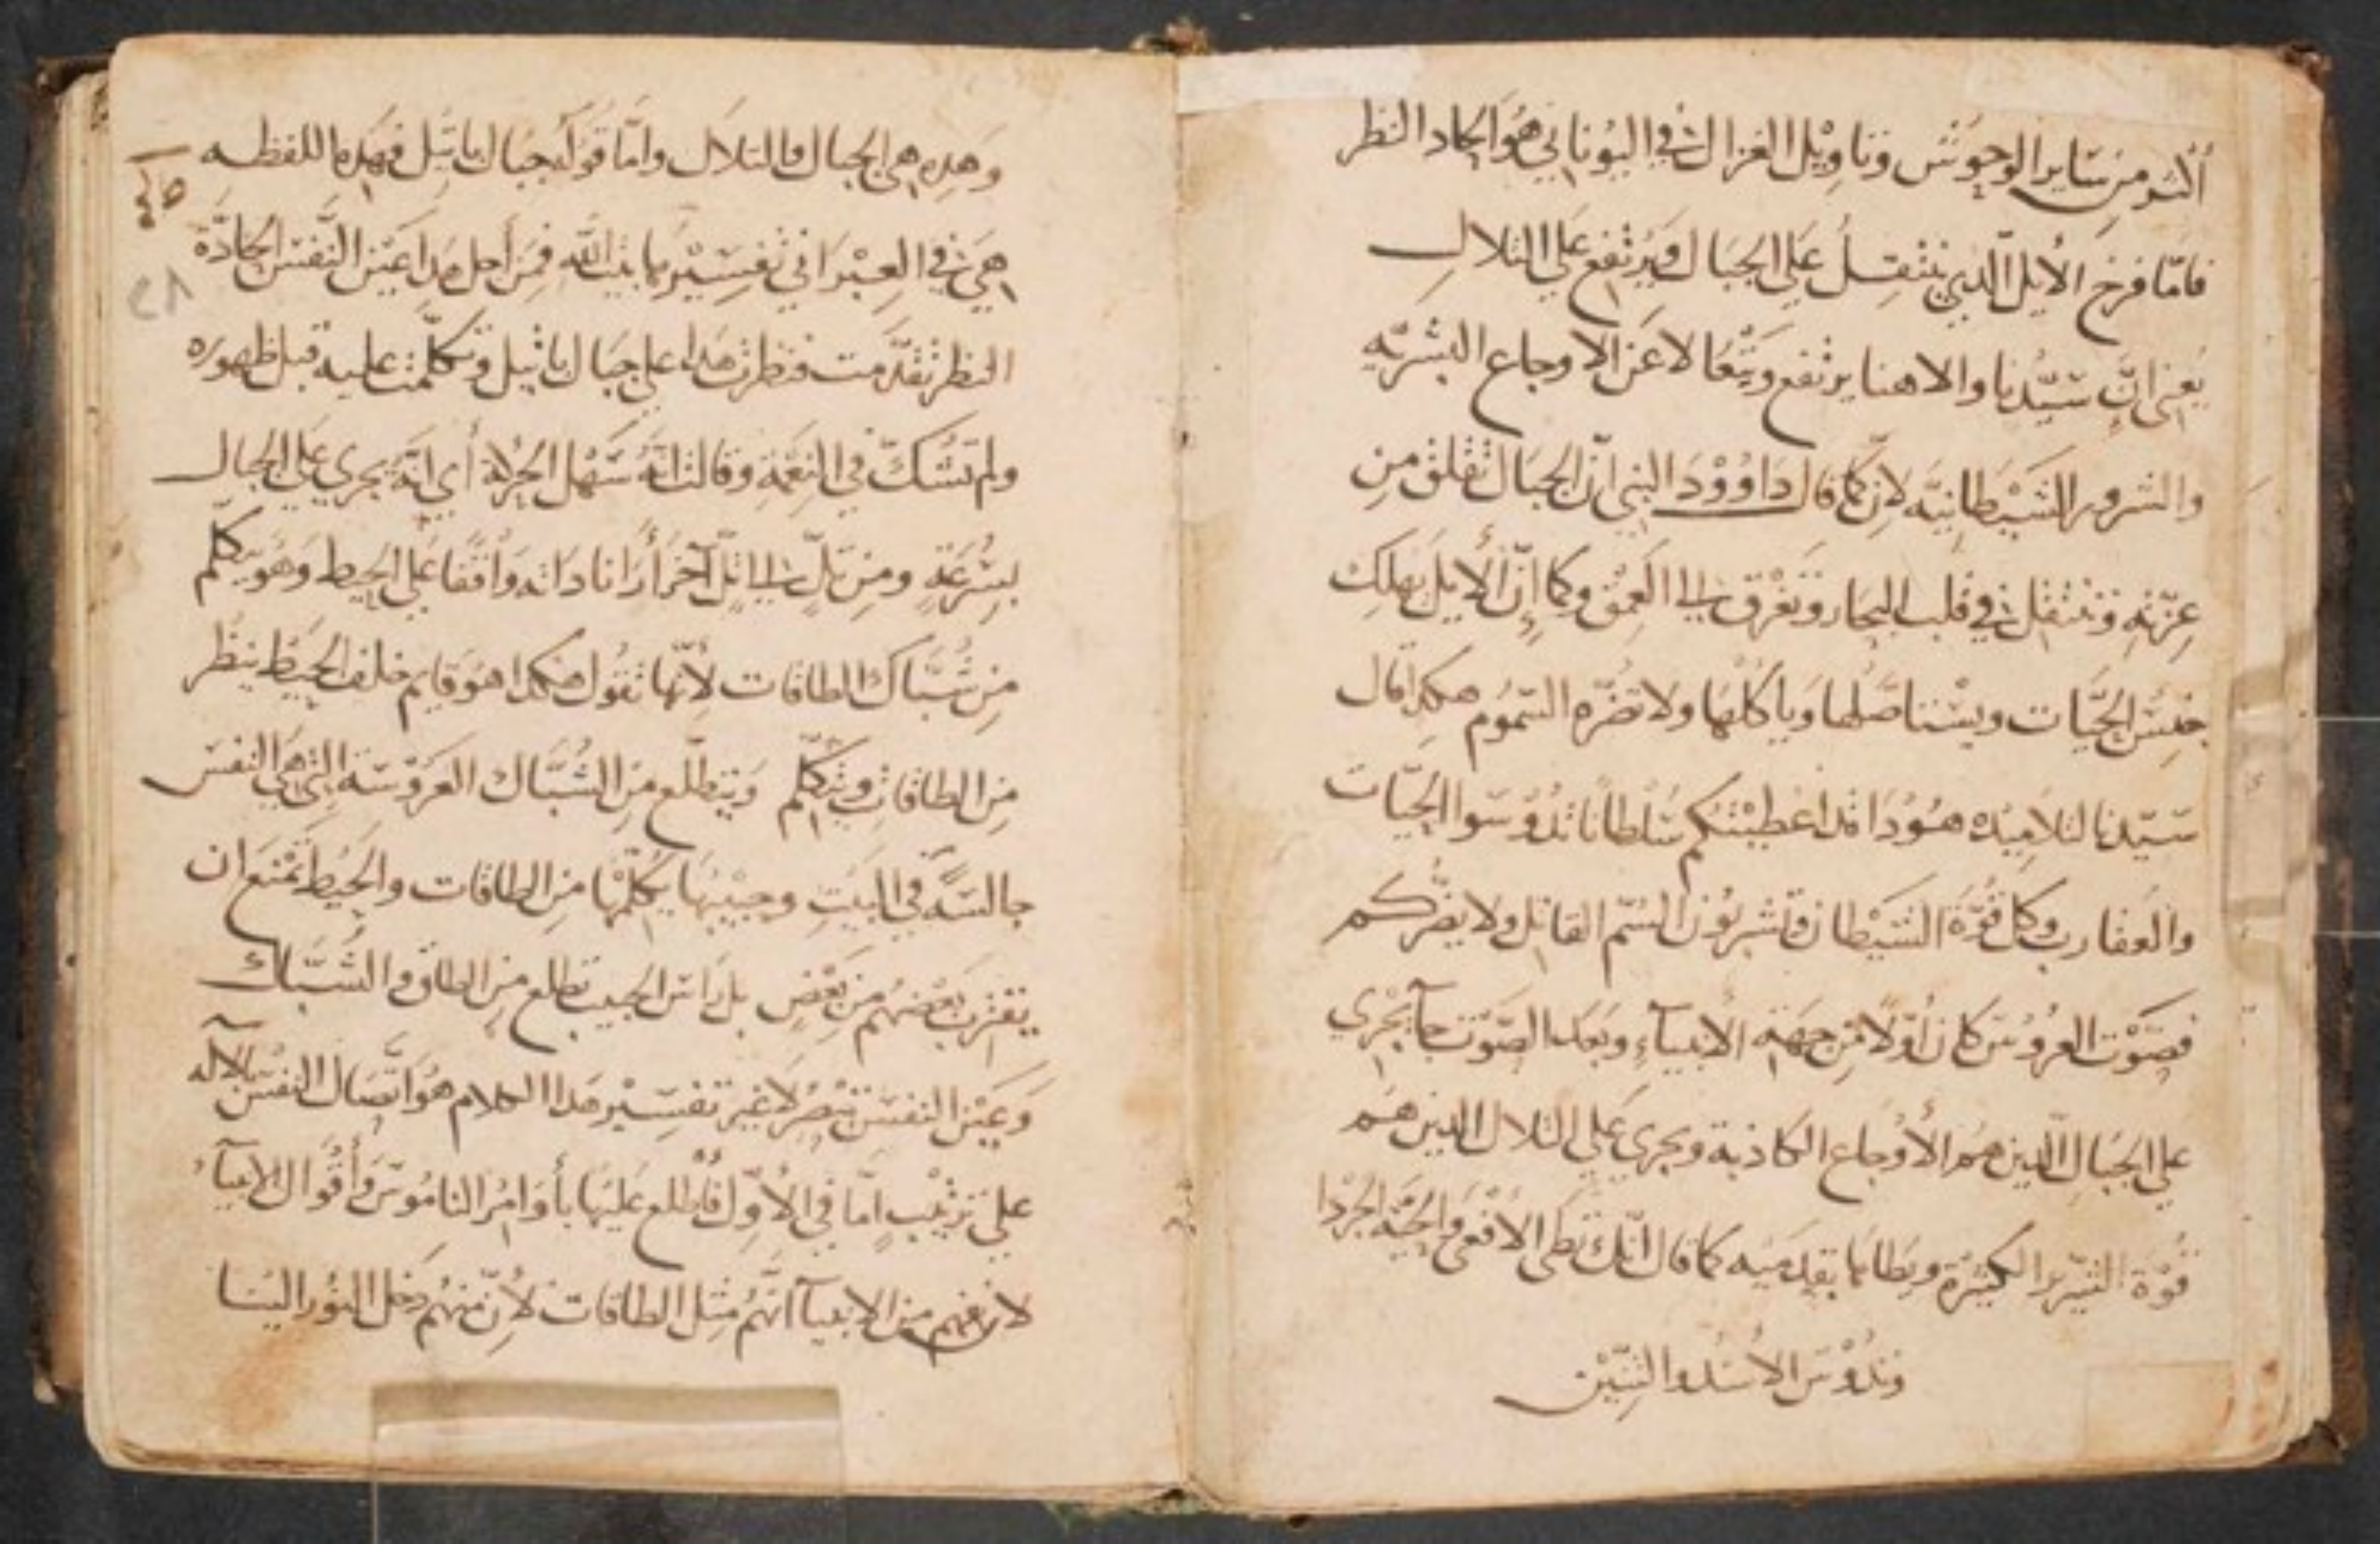 أكثر من سَاير الوحوُش وتاوِيْل الغزال في اليُوناني هُوَ الحاد النظر
فامّا فرخ الأيل الذي يَنْتقِلُ عَلي الجبَال وَيَرتفع عَلي التلال
يَعني انَّ سَيّدنا والاهنا يرتفع ويَتَعَالا عَن الاوجاع البشريّه
والشرور الشَيْطانِيّه لانّ كما قال دَاوُوْدَ النبي انّ الجبَال تقلق مِن
عِزّتهِ وتنتقل في قلب البحَار وتَغْرَق في العمق وكما إنّ الأيل يهلك
جنِسْ الحَيَّات ويسْتاصَلها وَياكلهَا ولا تضُرّه السّمُوم هكذا قال
سَيّدنا لتلاميده هوُدَا قد اعْطيْتكم سُلطانًا تدُوسَوا الحَيَّات
والعَقارب وكل قُوَّة الشَيْطان وتشربُون السُمّ القاتل ولا يضُّركم
فصَوْت العرُوسَ كان أوّلاً من جهَة الأنبيآءِ وبَعد الصَوْت جآ يجْرَي
علي الجبَالِ الّدين هم الأوْجاع الكاذبة ويجري عَلي التلال الدين هم
قُوّة الشِرّير الكثيرَة ويَطا بها بقدمَيه كما قال انّك تَطَى الأفْعَى والحيَّة الجُرْدا
وتدُوسَ الأسَدُ والتنِّيْن
وَهده هي الجبال والتلاَل وامَّا قوَله جبَال باتيل فهَده اللفظه
هيَ في العِبْرَاني تفسِيْرها بيت اللّه فمِن أجل هَدا عَيْن النَّفسَ الحَادّة
النظر تقدَّمت فنظرت هَدا علي جبَال باتيل وتكلَّمت عليه قبل ظهوره
ولم تَشُكّ في النِعْمَةِ وقالت انَّهُ سَهْل الحرْلة أي انَّه يجري عَلي الجبال
بسُرْعَةٍ ومِن تلٍّ الي تلٍّ آخَر أرَانا دَاته وَاقفًا عَلي الحَيط وَهُوَ يَتكلّم
مِن شُبَّاك الطاقات لأنّها تقُول هكدا هوَ قايم خلف الحَيْط ينظُر
مِن الطاقات ويتكلّم وَيتطلّع مِن الشُبَّاك العرَوْسَة التي هَي النفسَ
جالسَةً في البَيتِ وحبيْبها يكلّمْها من الطاقات والحَيْط تمْنَع ان
يقترب بَعْضهُم من بَعْضٍ بل رَاسَ الحبيب تطلع من الطاق والشَبَّاك
وَعَيْن النفسَ تبْصرُ لا غير تفسِيْر هَدا الكلام هوَ اتّصَال النفسَ بالآله
علي تَرتيْبٍ امّا في الأوّل فأطلع عَليْها بأوَامُر النامُوسَ وأقْوال الانبيآء
لانهم من الانبيآ انّهُم مثِل الطاقات لأنّ منهُم دَخل النوُر اليْنا